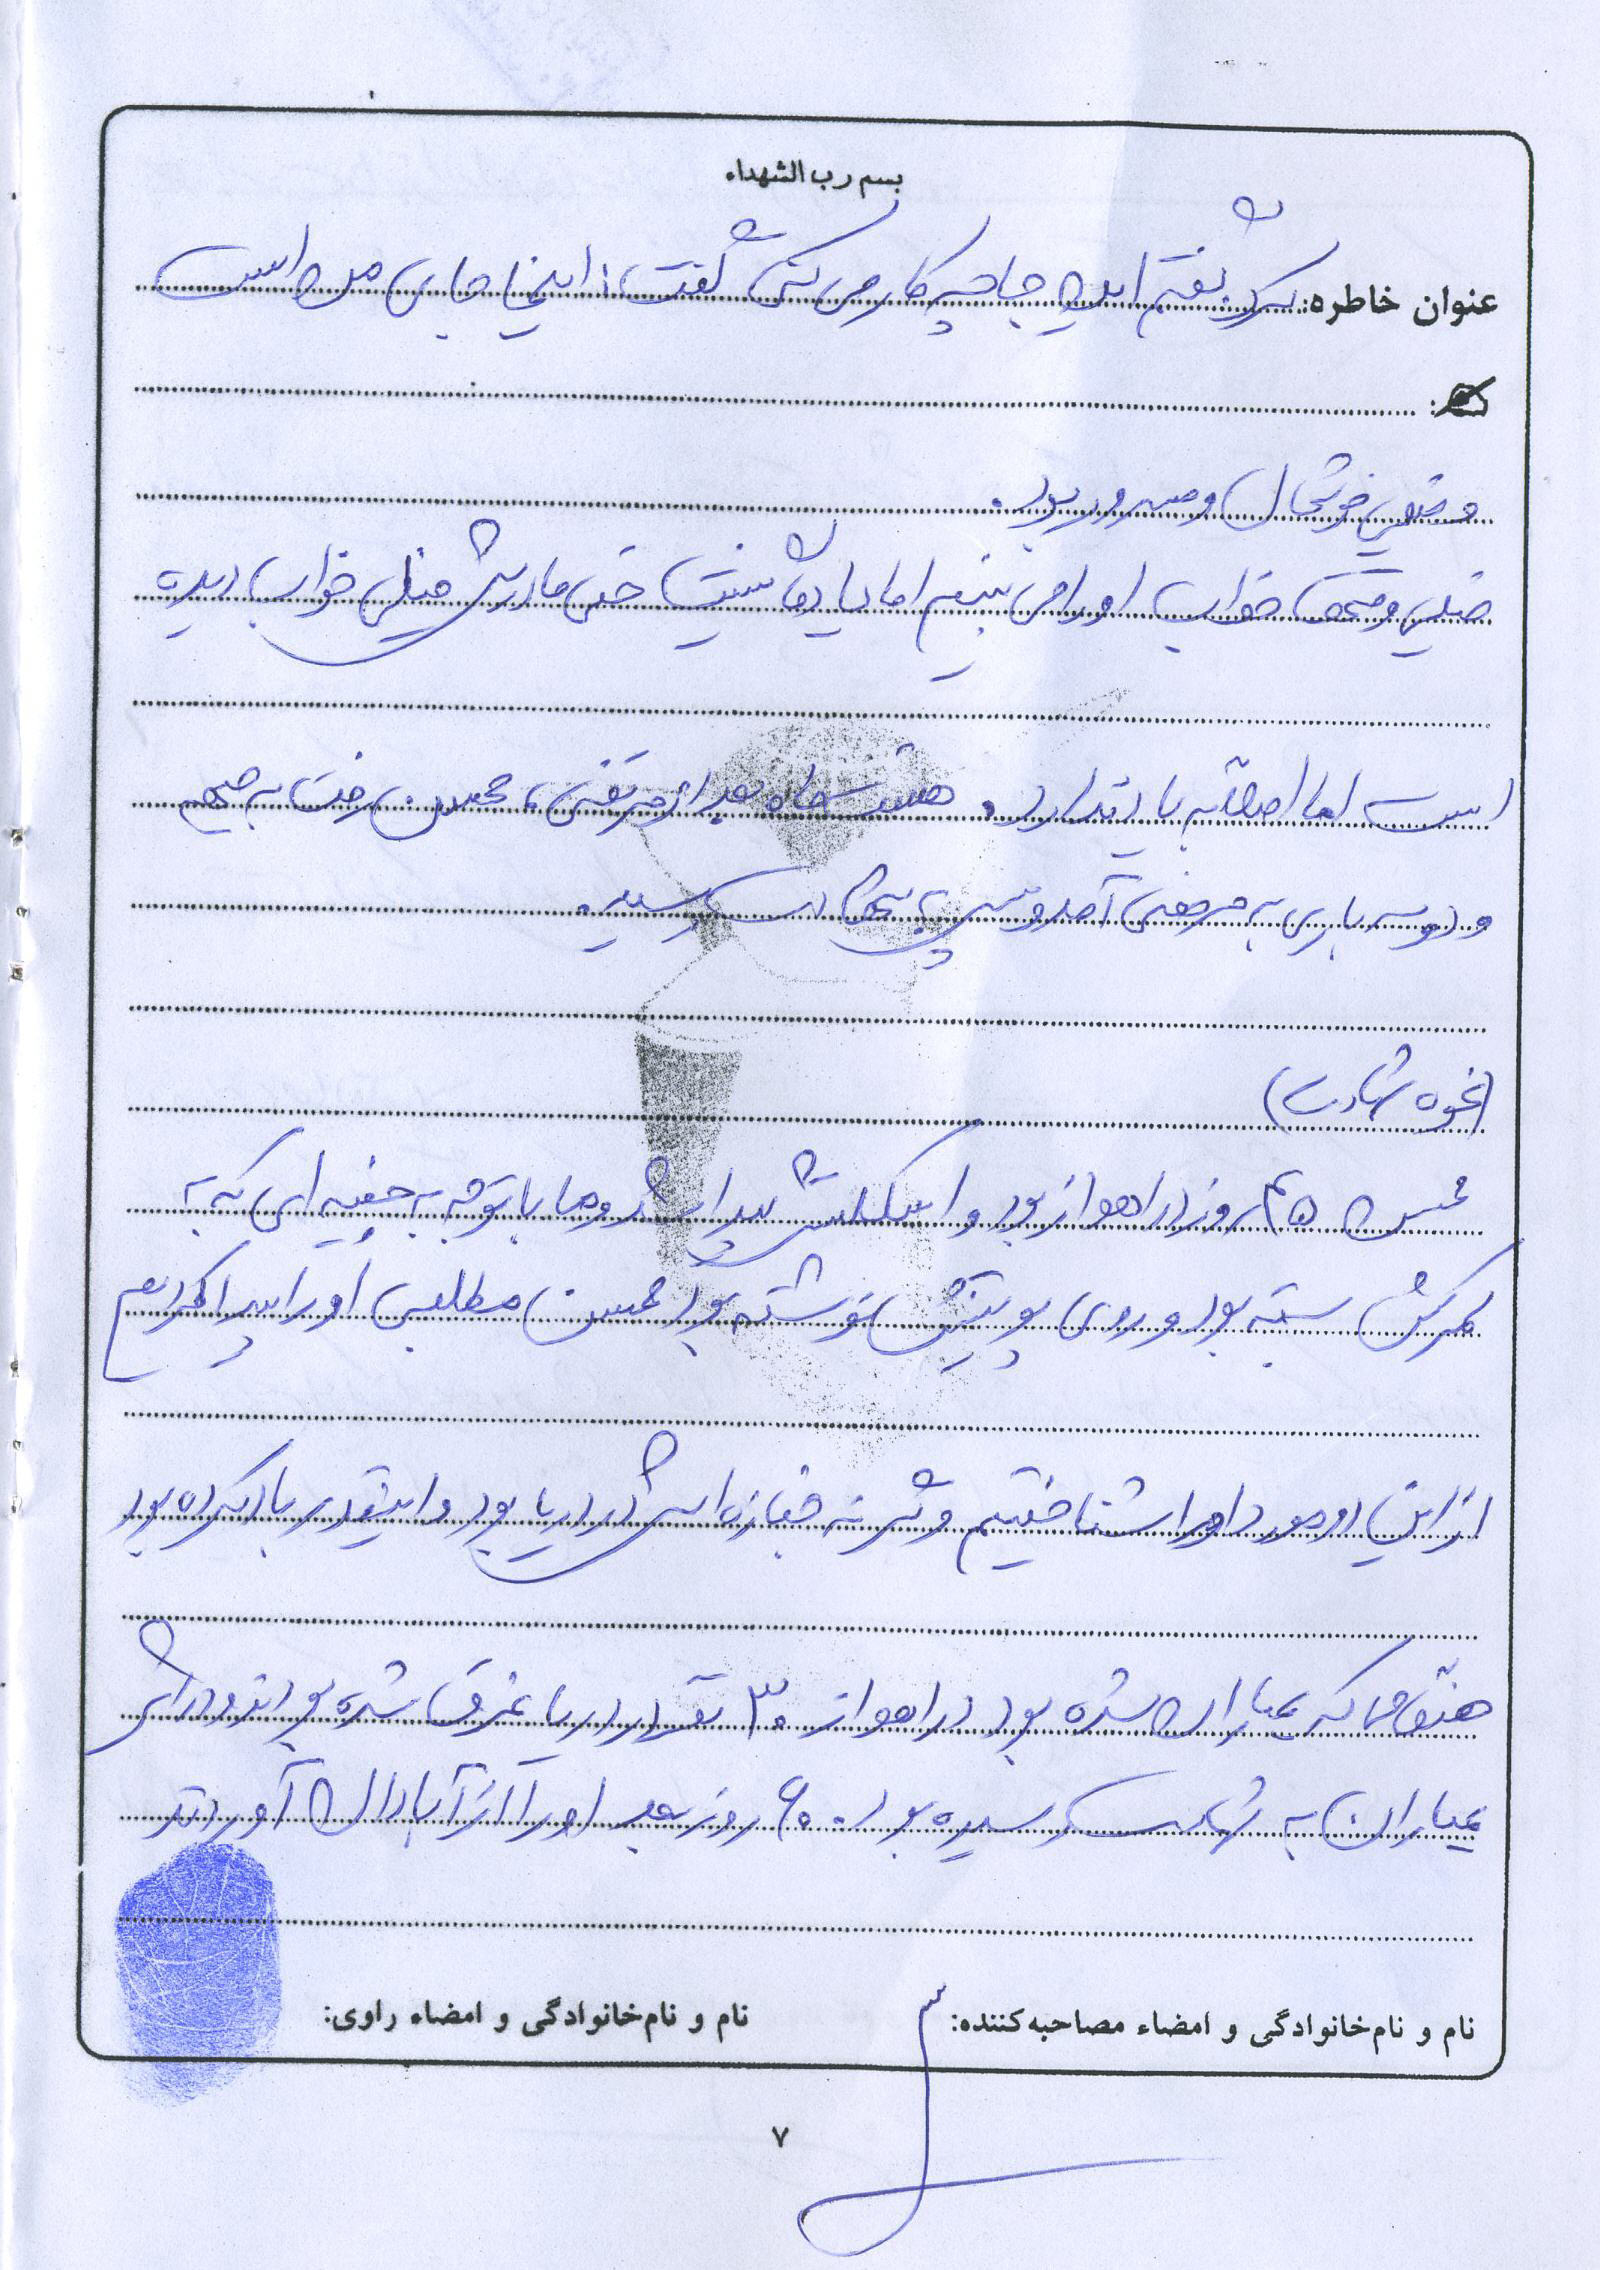 بسم رب الشهداء
عنوان خاطره: گفتم این جا چکار می کنی گفت: اینجا جای من است
و خیلی خوشحال و مسرور بود.
خیلی وقتها خواب او را می بینم اما یادم نیست حتی مادرش خیلی خواب دیده
است اما اصلاً به یاد ندارد. هشت ماه بعد از مرخصی، محسن رفت به جبهه
و دو سه باری به مرخصی آمد و سپس به شهادت رسید.
(نحوه شهادت)
محسن ۴۵ روز در اهواز بود و اسکلتش پیدا شد و ما با توجه به چفیه ای که به
کمرش بسته بود و روی پوتینش نوشته بود محسن مطلبی او را پیدا کردیم
از این دو مورد او را شناختیم و گرنه جنازه اش در دریا بود و اینقدر باد کرده بود
هنگامی که بمباران شده بود در اهواز ۳۰ نفر در دریا غرق شده بودند و در اثر
بمباران به شهادت رسیده بود. ۹۰ روز بعد او را از آبادان آوردند
نام و نام‌خانوادگی و امضاء مصاحبه‌کننده:
نام و نام‌خانوادگی و امضاء راوی:
۷